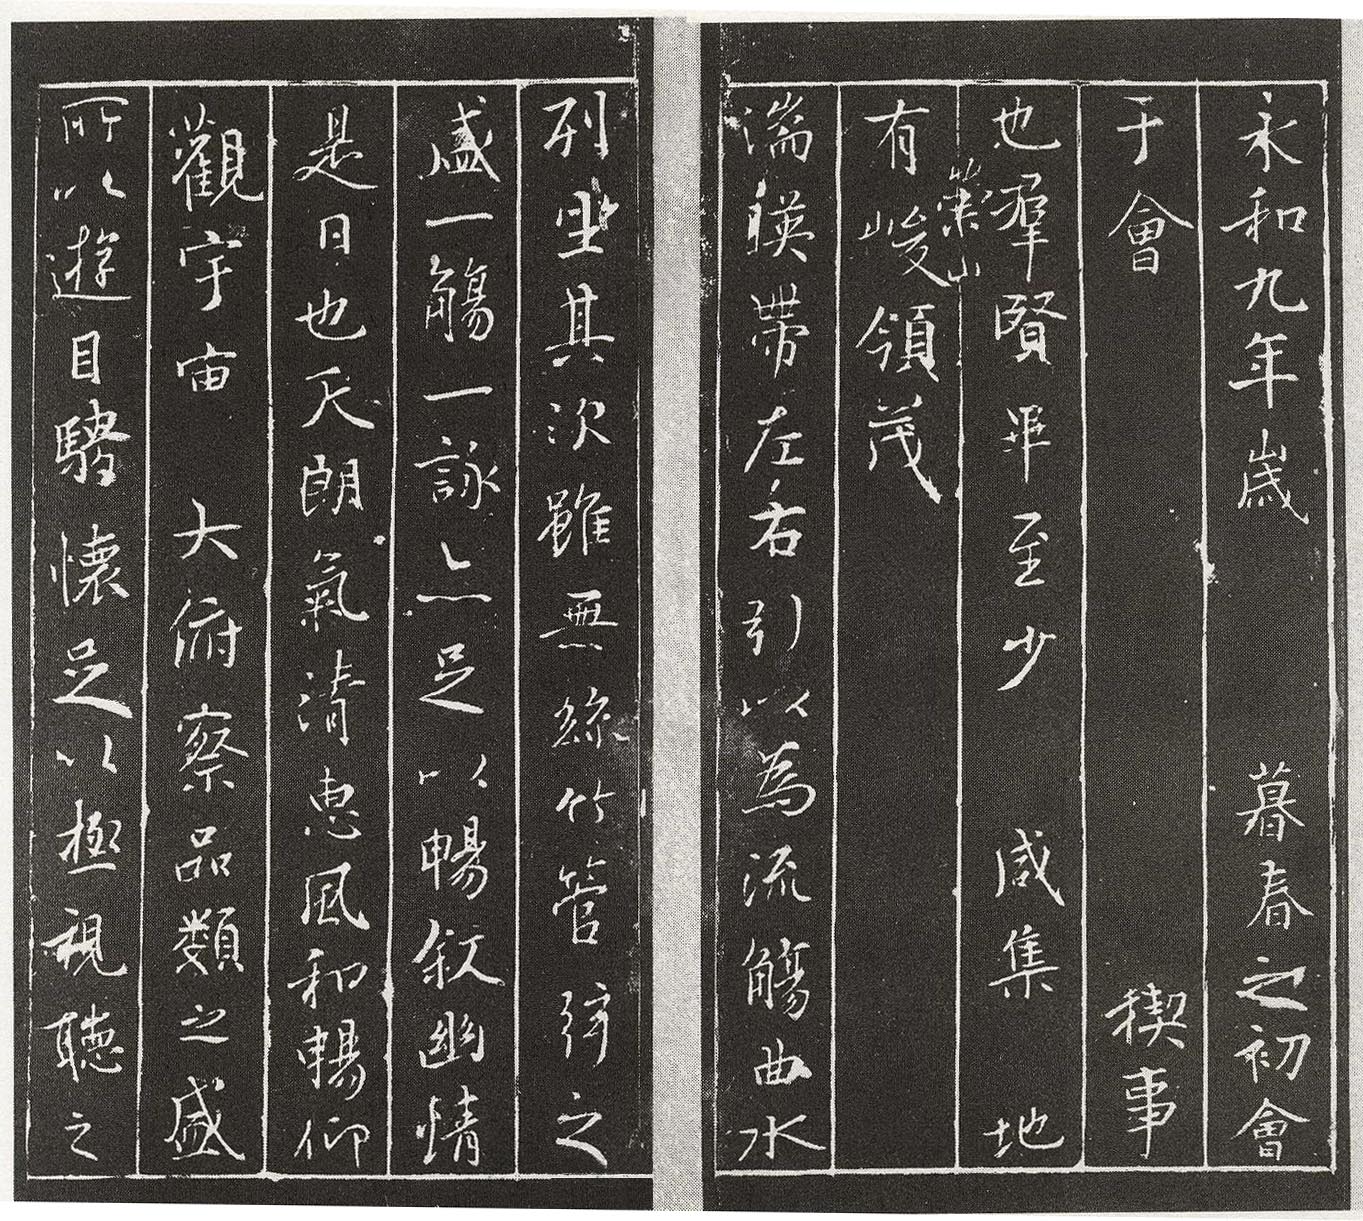 永和九年歲暮春之初會
于會稧事
也羣賢畢至少咸集地
崇山
有峻領茂
湍暎帶左右引以為流觴曲水
列坐其次雖無絲竹管弦之
盛一觴一詠亦足以暢叙幽情
是日也天朗氣清惠風和暢仰
觀宇宙大俯察品類之盛
所以遊目騁懷足以極視聽之